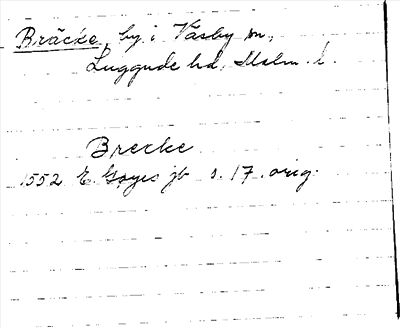 Bräcke, by i Väsby sn,
Luggude hd. Malm. l.
Brecke
1552 E. Gøyes jb s. 17. orig.